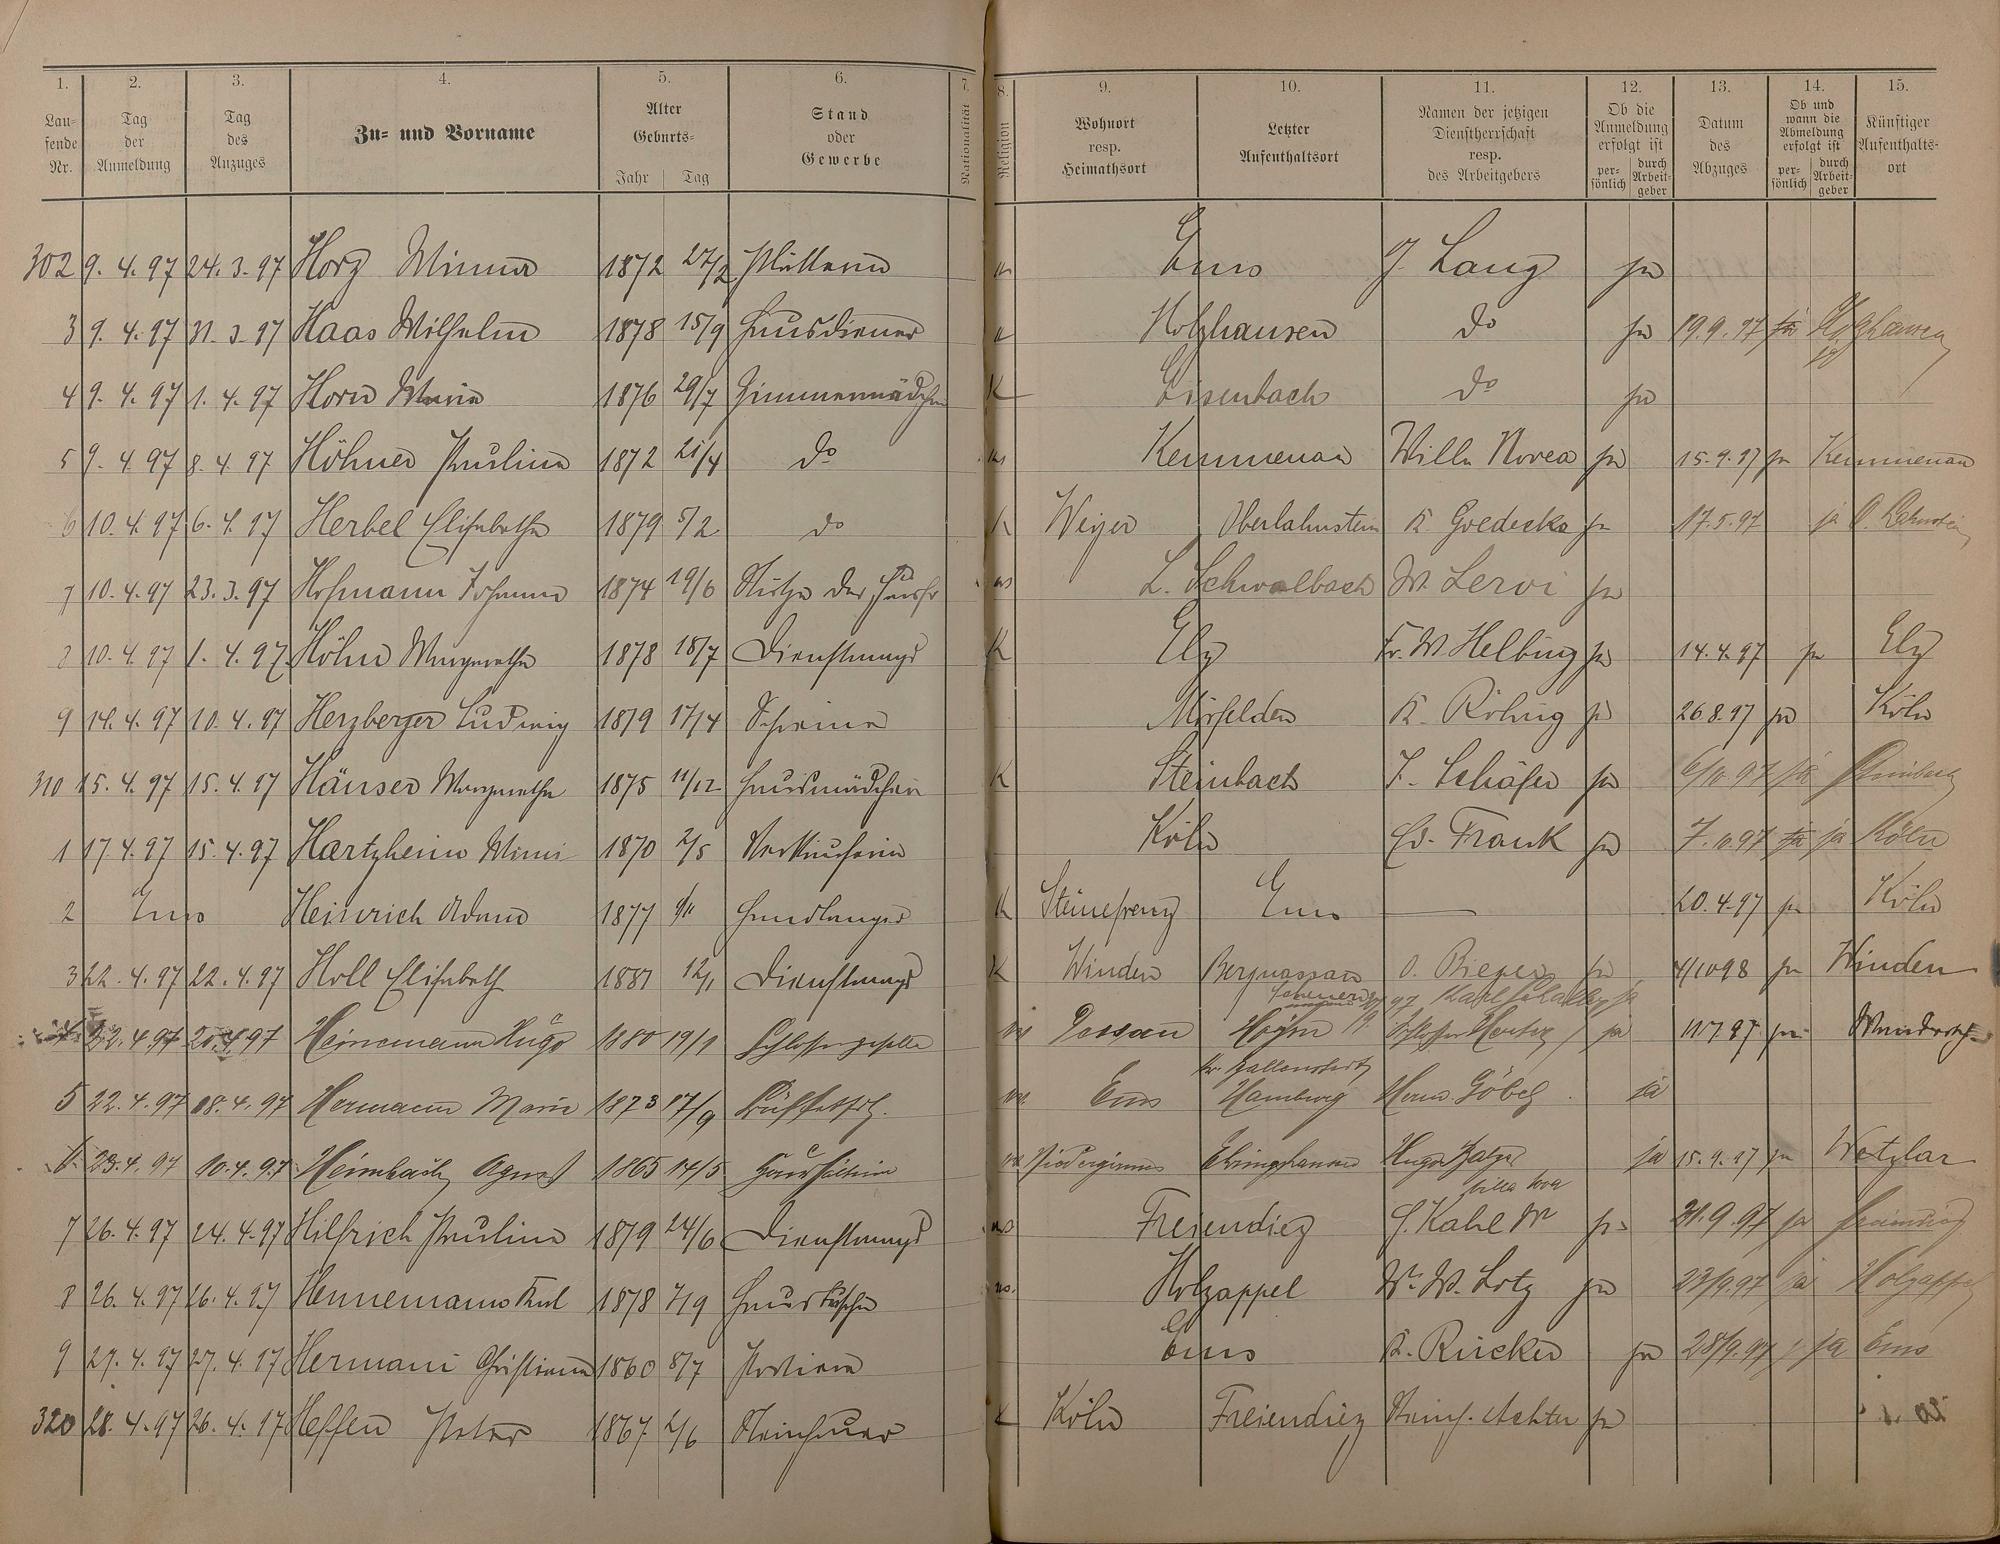 1. 2. 3. 4. 5. 6. 7.
Laufende Nr. Tag der Anmeldung Tag des Anzuges Zu- und Vorname Alter Geburts- Jahr Tag Stand oder Gewerbe Nationalität
8. 9. 10. 11. 12. 13. 14. 15.
Religion Wohnort resp. Heimathsort Letzter Aufenthaltsort Namen der jetzigen Dienstherrschaft resp. des Arbeitgebers Ob die Anmeldung erfolgt ist persönlich durch Arbeitgeber Datum des Abzuges Ob und wann die Abmeldung erfolgt ist persönlich durch Arbeitgeber Künftiger Aufenthaltsort
302 9. 4. 97 24. 3. 97 Horz Minna 1872 27/2 Ems J. Lang ja
3 9. 4. 97 31. 3. 97 Haas Wilhelm 1878 15/9 Hausdiener Holzhausen do ja 19. 9. 97 ja Holzhausen
4 9. 4. 97 1. 4. 97 Horn Maria 1876 29/7 Zimmermädchen K Eisenbach do ja
5 9. 4. 97 8. 4. 97 Höhner Pauline 1872 21/4 do Kemmenau Villa Novea ja 15. 9. 97 ja Kemmenau
6 10. 4. 97 6. 4. 97 Herbel Elisabetha 1879 5/2 do K Weyer Oberlahnstein K. Goedecke ja 17. 5. 97 ja O. Lahnstein
7 10. 4. 97 23. 3. 97 Hofmann Johanna 1874 19/6 Stütze der Hausfr L. Schwalbach W. Lervi ja
8 10. 4. 97 1. 4. 97 Höhn Margaretha 1878 18/7 Dienstmagd K Elz Fr. W Helbing ja 14. 4. 97 ja Elz
9 14. 4. 97 10. 4. 97 Herzberger Ludwig 1879 17/4 Schreiner Mörfelden K. Röhrig ja 26. 8. 97 ja Köln
310 15. 4. 97 15. 4. 97 Häuser Margaretha 1875 11/12 Hausmädchen K Steinbach J. Schäfer ja 6/10 97 ja Steinbach
1 17. 4. 97 15. 4. 97 Hartzheim Mimi 1870 2/5 Verkäuferin Köln Ed. Frank ja 7. 10. 97 ja ja Köln
2 Ems Heinrich Adam 1877 Handlanger K Steinefrenz Ems — 20. 4. 97 ja Köln
3 22. 4. 97 22. 4. 97 Holl Elisabeth 1881 12/1 Dienstmagd K Winden Bergnassau O. Bieger ja 4/10 98 ja Winden
Scheuern 97 Karl ja
4 22. 4. 97 20. 4. 97 Heinemann Hugo 1880 19/1 Schlossergeselle Dessau Hoym Schlosser ja 11 7 97 ja
Kr. Ballenstedt
5 22. 4. 97 18. 4. 97 Hermann Marie 1873 17/9 Büffetfrl. Ems Hamburg Herm. Göbel ja
6 23. 4. 97 10. 4. 97 Heimbach Agnes 1865 14/5 Haushälterin Niedergirmes Ehringshausen Hugo Balzer ja 15. 9. 97 ja Wetzlar
Villa
7 26. 4. 97 24. 4. 97 Hilfrich Pauline 1879 24/6 Dienstmagd Freiendiez C. Kahl W ja 21. 9. 97 ja Freiendiez
8 26. 4. 97 26. 4. 97 Hennemann Karl 1878 7/9 Hausbursche Holzappel W. W. Lotz ja 23/9. 97 ja Holzappel
9 27. 4. 97 27. 4. 97 Hermani Christian 1860 8/7 Portier Ems K. Rücker ja 28/9. 97 ja Ems
320 28. 4. 97 26. 4. 97 Heffen Peter 1867 2/6 Steinhauer K Köln Freiendiez Achter ja